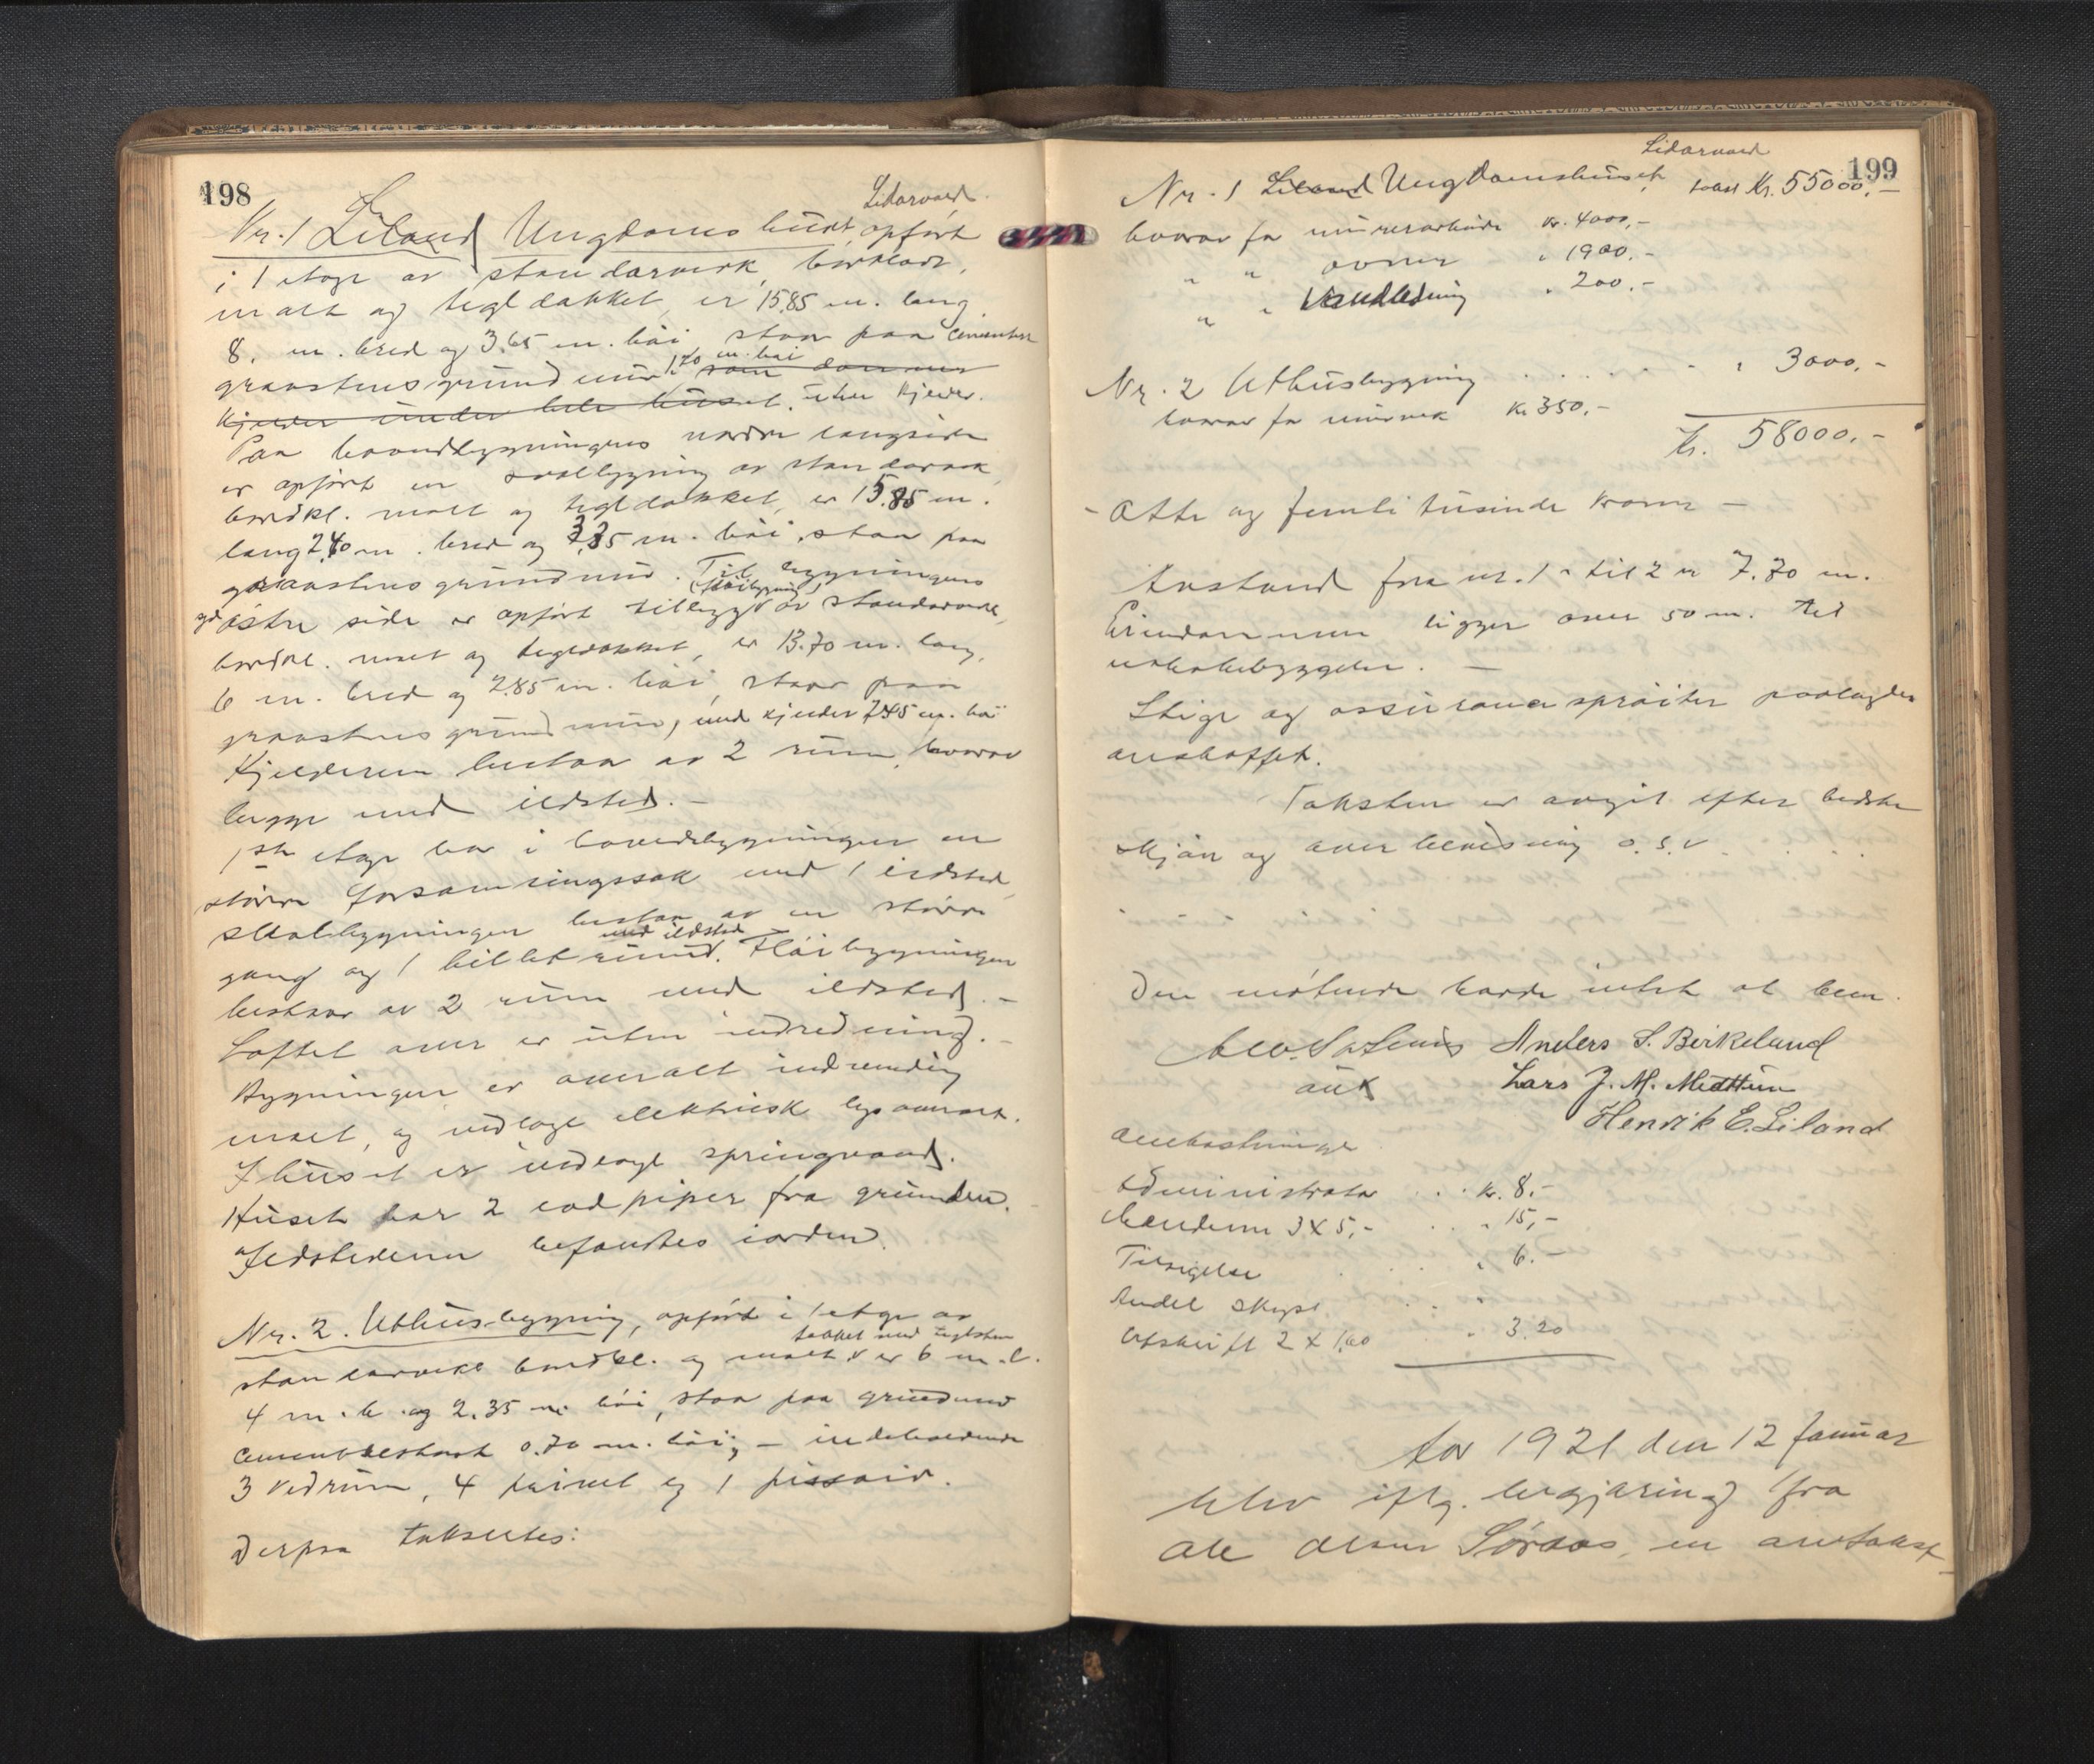 198
Lidarvord
Nr. 1 Liland Ungdomshuset, opført
i 1 etage av standarverk, bordklædt,
malt og tegldækket, er 15,85 m. lang
8. m. bred og 3,65 m. høi, staar paa cementert
graastensgrundmur 1,70 m. høi som danner
kjelder under hele huset. uten kjelder.
Paa hovedbygningens nordre langside
er opført en svalbygning av standarverk
bordkl. malt og tegldækket, er 15,85 m.
lang 2,40 m. bred og 3,35 m. høi, staar paa
graastensgrundmur. Til bygningens
syd østre side er opført tilbygg (fløibygning) av standarverk,
bordkl. malt og tegldækket, er 13.70 m. lang,
6 m. bred og 2,85 m. høi, staar paa
graastensgrundmur, med kjelder 2,45 m. høi
Kjelderen bestaar av 2 rum, hvorav
begge med ildsted. -
1ste etage har i hovedbygningen en
større forsamlingssal med 1 ildsted,
svalbygningen bestaar av en større
gang og 1 billetrum med ildsted. Fløibygningen
bestaar av 2 rum med ildsted. -
Loftet over er uten indredning. -
Bygningen er overalt indvendig
malt, og indlagt elektrisk lys overalt.
I huset er indlagt springvand.
Huset har 2 lodpiper fra grunden.
Ildstederne befandtes i orden.
Nr. 2. Uthusbygning, opført i 1 etage av
standarverk bordkl. og malt takket med teglsten er 6 m. l.
4 m. b. og 2,35 m. høi, staar paa grundmur
cementbestøpt 0.70 m. høi; - indeholdende
3 vedrum, 4 privet og 1 pissoir.
Derpaa taksertes:
199
Lidarvord
Nr. 1 Liland Ungdomshuset, takst Kr. 55000,-
hvorav for murerarbeide Kr. 4000,-
" " ovner " 1900.-
" " Vandledning " 200.-
Nr. 2 Uthusbygning . . . . . . " 3000,-
hvorav for murverk Kr. 350,-
Kr. 58000.-
- Otte og femti tusinde kroner -
Avstand fra nr. 1 - til 2 er 7.70 m.
Eiendommen ligger over 50 m. til
nabobebyggelse. -
Stige og assuransesprøiter paalagdes
anskaffet.
Taksten er avgit efter bedste
skjøn og overbevisning o.s.v.
Den møtende hadde intet at bem.
Anders S. Birkeland
Lars J. M. Midttun
Henrik E. Liland
Omkostninger
Administrator . . . Kr. 8.-
Mændene 3 X 5,- . . " 15,-
Tilsigelse . . . " 6.-
Andel skyss . . .
Utskrift 2 X 1,60 . . " 3.20
Aar 1921 den 12 januar
blev iflg. begjæring fra
Ole Olsen Søraas, en omtakst